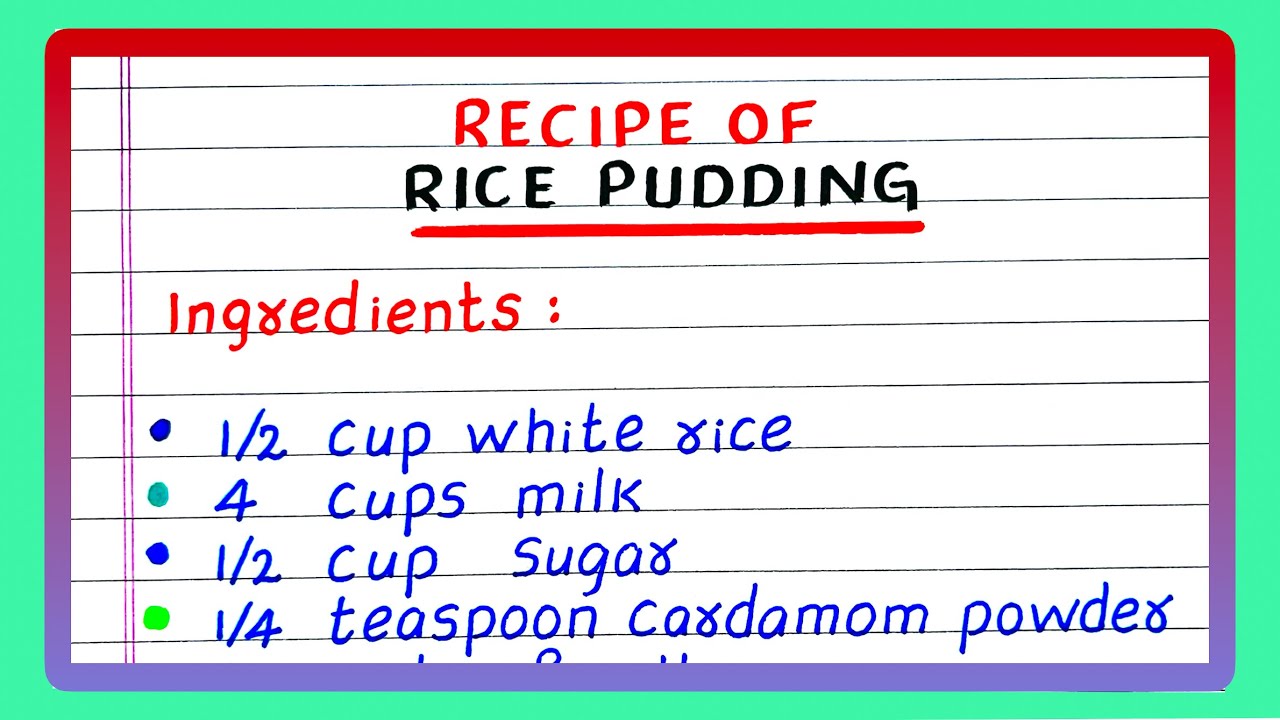 RECIPE OF
RICE PUDDING
Ingredients :
1/2 cup white rice
4 cups milk
1/2 cup sugar
1/4 teaspoon cardamom powder